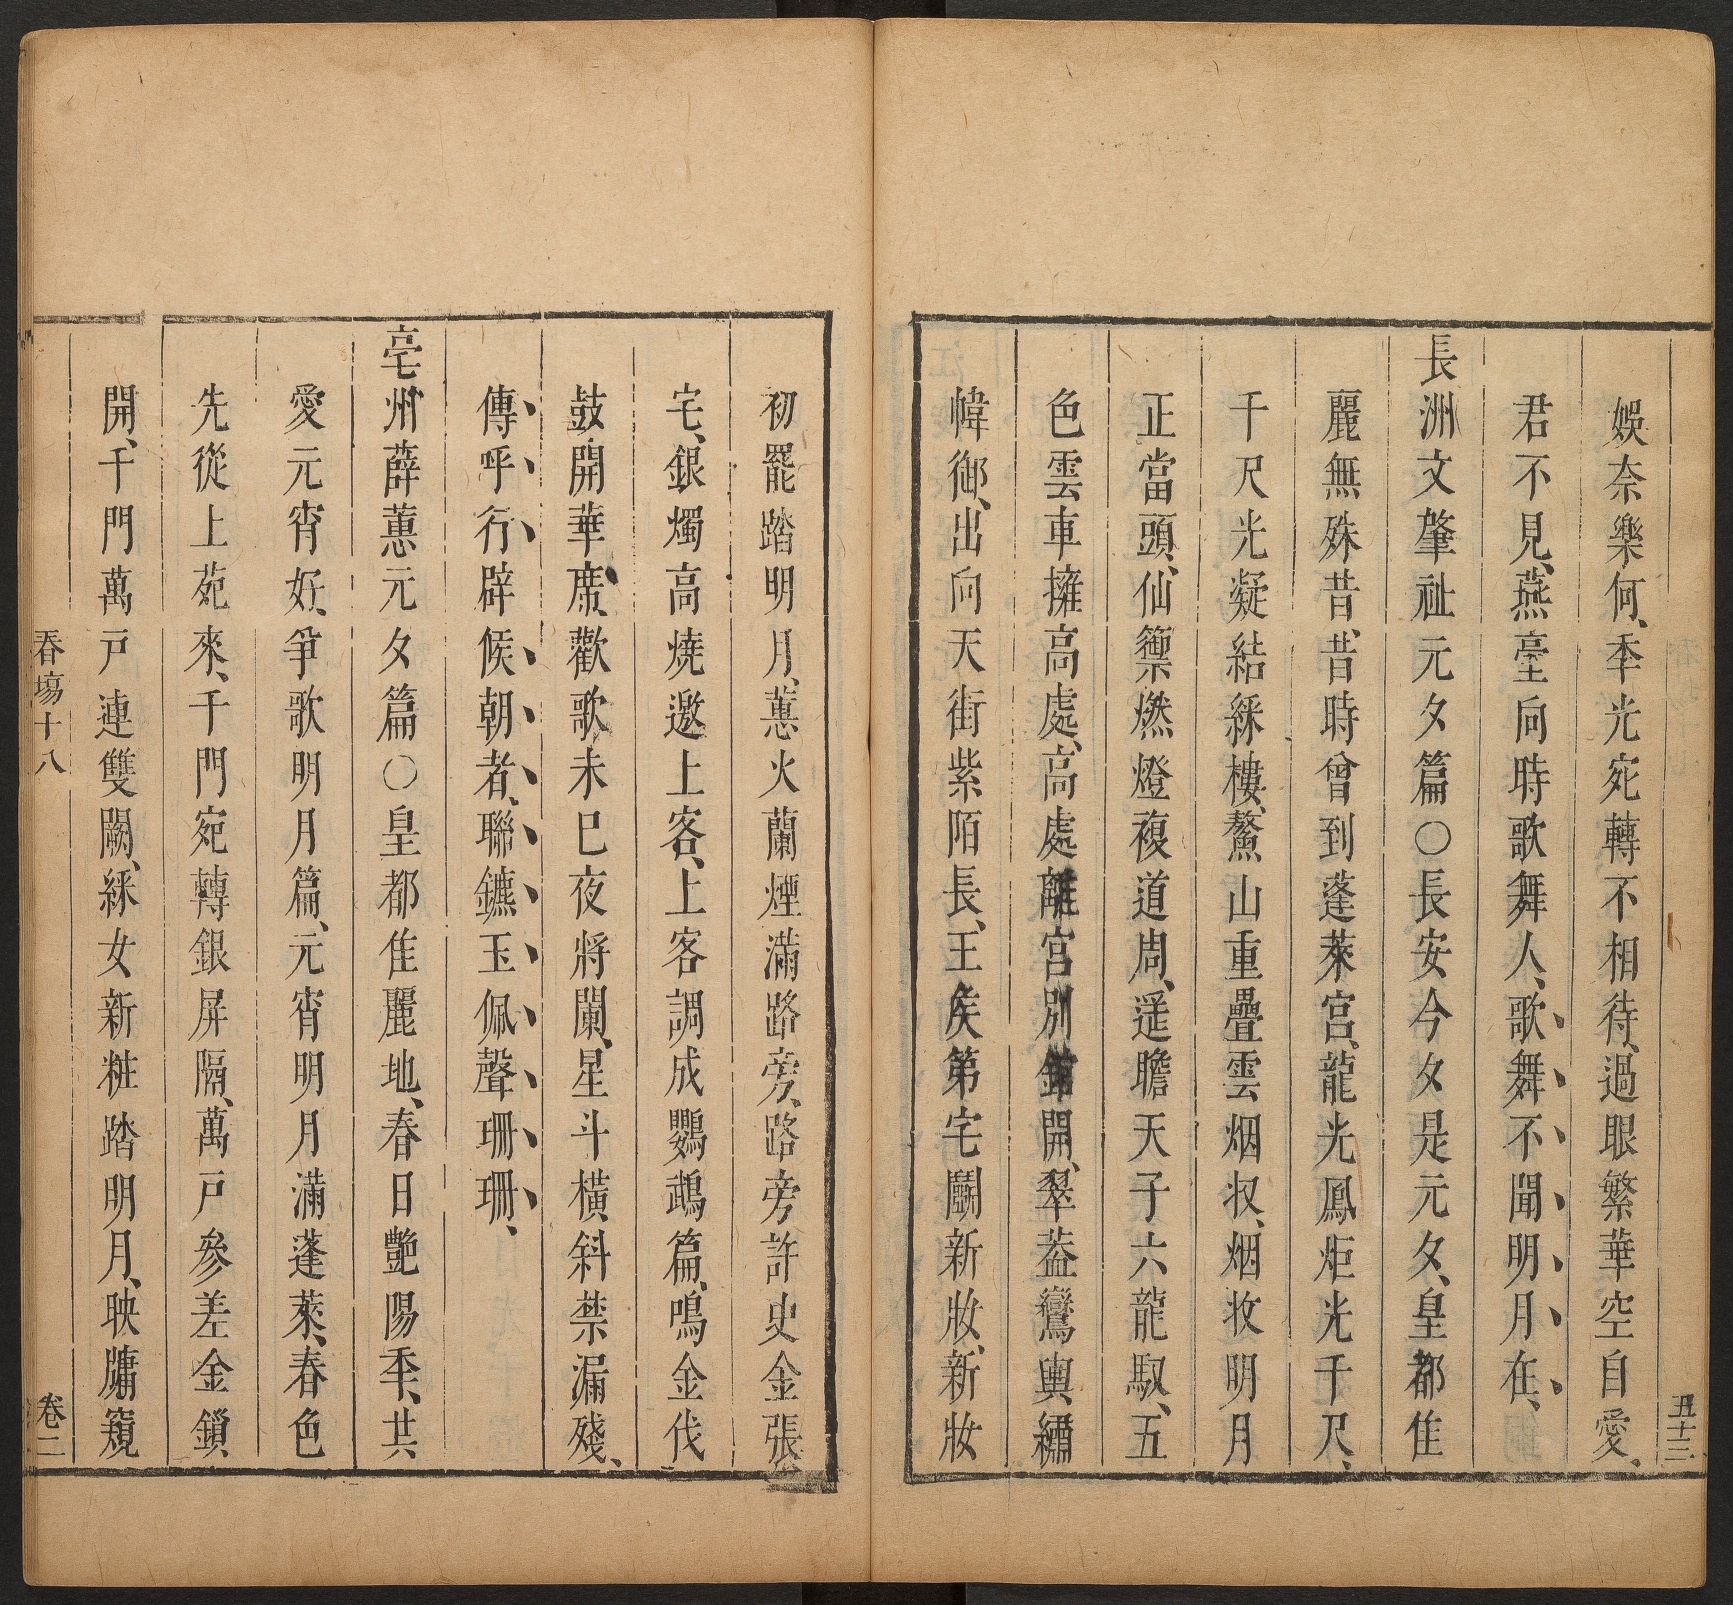 五十三
娛奈樂何、季光宛轉不相待、過眼繁華空自愛、
君不見、燕臺向時歌舞人、歌舞不聞明月在、
長洲文肇祉元夕篇○長安今夕是元夕、皇都佳
麗無殊昔、昔時曾到蓬萊宮、龍光鳳炬光千尺、
千尺光凝結綵樓、鰲山重疊雲烟収、烟收明月
正當頭、仙籞燃燈複道周、遥瞻天子六龍馭、五
色雲車擁高處、高處離宮別舘開、翠葢鸞輿繡
幃御、出向天街紫陌長、王矦第宅鬬新妝、新妝
初罷踏明月、蕙火蘭煙滿路旁、路旁許史金張
宅、銀燭高燒邀上客、上客調成鸚鵡篇、鳴金伐
鼓開華席、歡歌未巳夜將闌、星斗橫斜禁漏殘、
傳呼行辟候朝者、聯鑣玉佩聲珊珊、
亳州薛蕙元夕篇○皇都佳麗地、春日艷陽季、共
愛元宵好、爭歌明月篇、元宵明月滿蓬萊、春色
先從上苑來、千門宛轉銀屏隔、萬戸參差金鎖
開、千門萬戸連雙闕、綵女新粧踏明月、映牗窺
春塲十八
卷二